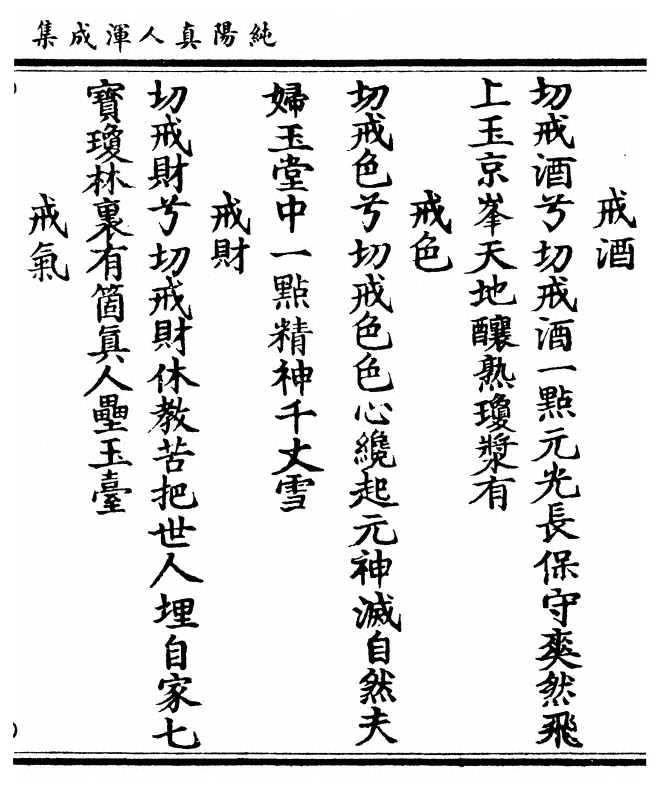 純陽真人渾成集
戒酒
切戒酒兮切戒酒一點元光長保守奭然飛
上玉京峯天地釀熟瓊漿有
戒色
切戒色兮切戒色色心纔起元神滅自然夫
婦玉堂中一點精神千丈雪
戒財
切戒財兮切戒財休教苦把世人埋自家七
寶瓊林裏有箇真人壘玉臺
戒氣